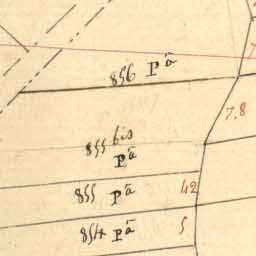 856 Pª
7.8
855 bis
Pª
855 Pª 42
854 Pª 5